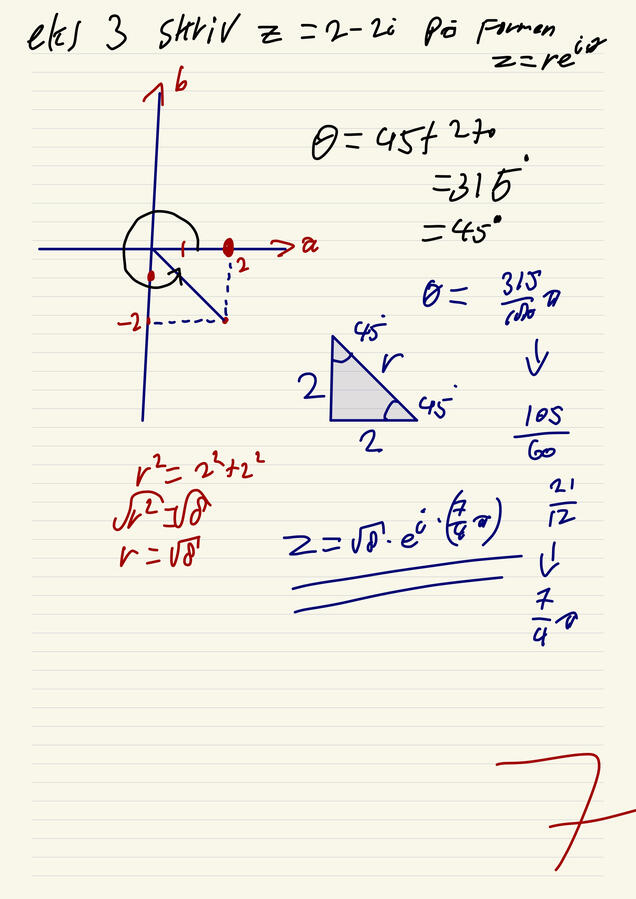 eks 3 skriv z = 2-2i på formen
z = re^{iθ}
b
a
2
-2
θ = 45 + 270
= 315°
= 45°
θ = 315/180 π
↓
105/60
21/12
↓
7/4 π
45°
r
2
45°
2
r² = 2² + 2²
√r² = √8
r = √8
z = √8 · e^{i · (7/4 π)}
7